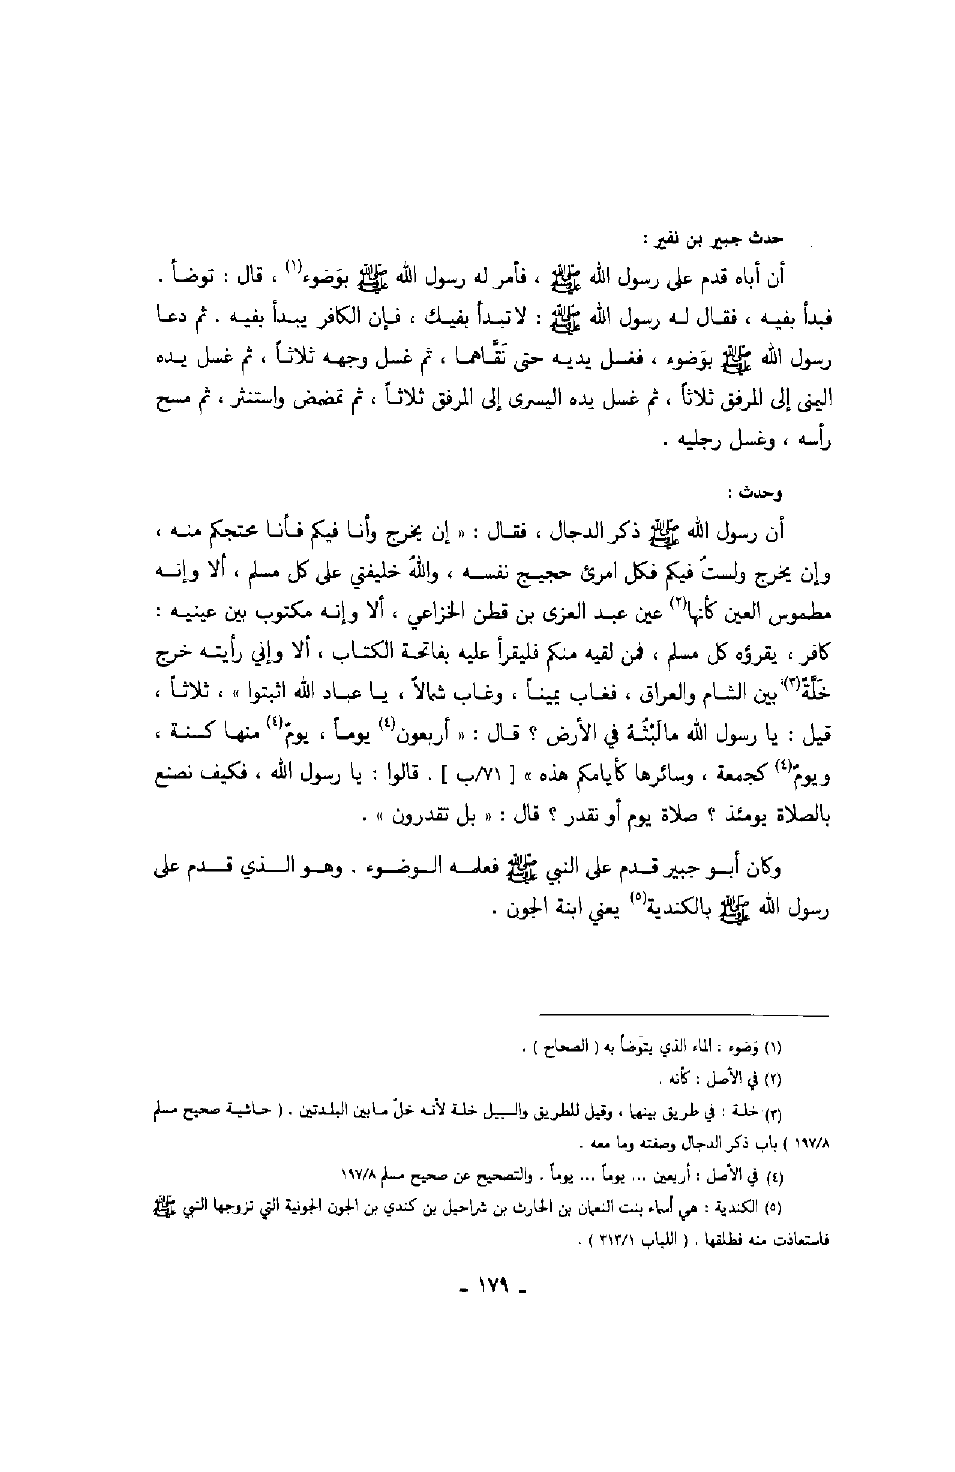 حدث جبير بن نفير :
أن أباه قدم على رسول الله ﷺ ، فأمر له رسول الله ﷺ بوَضوء(١) ، قال : توضأ .
فبدأ بفيه ، فقال له رسول الله ﷺ : لا تبدأ بفيك ، فإن الكافر يبدأ بفيه . ثم دعا
رسول الله ﷺ بوَضوء ، فغسل يديه حتى نَقَّاهما ، ثم غسل وجهه ثلاثاً ، ثم غسل يده
اليمنى إلى المرفق ثلاثاً ، ثم غسل يده اليسرى إلى المرفق ثلاثاً ، ثم تمضمض واستنثر ، ثم مسح
رأسه ، وغسل رجليه .
وحدث :
أن رسول الله ﷺ ذكر الدجال ، فقال : « إن يخرج وأنا فيكم فأنا محتجكم منه ،
وإن يخرج ولستُ فيكم فكل امرئ حجيج نفسه ، واللهُ خليفتي على كل مسلم ، ألا وإنه
مطموس العين كأنها(٢) عين عبد العزى بن قطن الخزاعي ، ألا وإنه مكتوب بين عينيه :
كافر ، يقرؤه كل مسلم ، فمن لقيه منكم فليقرأ عليه بفاتحة الكتاب ، ألا وإني رأيته خرج
خَلَّةً(٣) بين الشام والعراق ، فغاب يميناً ، وغاب شمالاً ، يا عباد الله اثبتوا » ، ثلاثاً ،
قيل : يا رسول الله ما لَبْثُه في الأرض ؟ قال : « أربعون(٤) يوماً ، يومٌ(٤) منها كسنة ،
ويومٌ(٤) كجمعة ، وسائرها كأيامكم هذه » [ ٧١/ب ] . قالوا : يا رسول الله ، فكيف نصنع
بالصلاة يومئذ ؟ صلاة يوم أو نقدر ؟ قال : « بل تقدرون » .
وكان أبو جبير قدم على النبي ﷺ فعلمه الوضوء . وهو الذي قدم على
رسول الله ﷺ بالكندية(٥) يعني ابنة الجون .
(١) وَضوء : الماء الذي يتوَضأ به ( الصحاح ) .
(٢) في الأصل : كأنه .
(٣) خلة : في طريق بينهما ، وقيل للطريق والسبيل خلة لأنه خلّ ما بين البلدتين . ( حاشية صحيح مسلم
١٩٧/٨ ) باب ذكر الدجال وصفته وما معه .
(٤) في الأصل : أربعين ... يوماً ... يوماً . والتصحيح عن صحيح مسلم ١٩٧/٨
(٥) الكندية : هي أسماء بنت النعمان بن الحارث بن شراحيل بن كندي بن الجون الجونية التي تزوجها النبي ﷺ
فاستعاذت منه فطلقها . ( اللباب ٣١٣/١ ) .
- ١٧٩ -